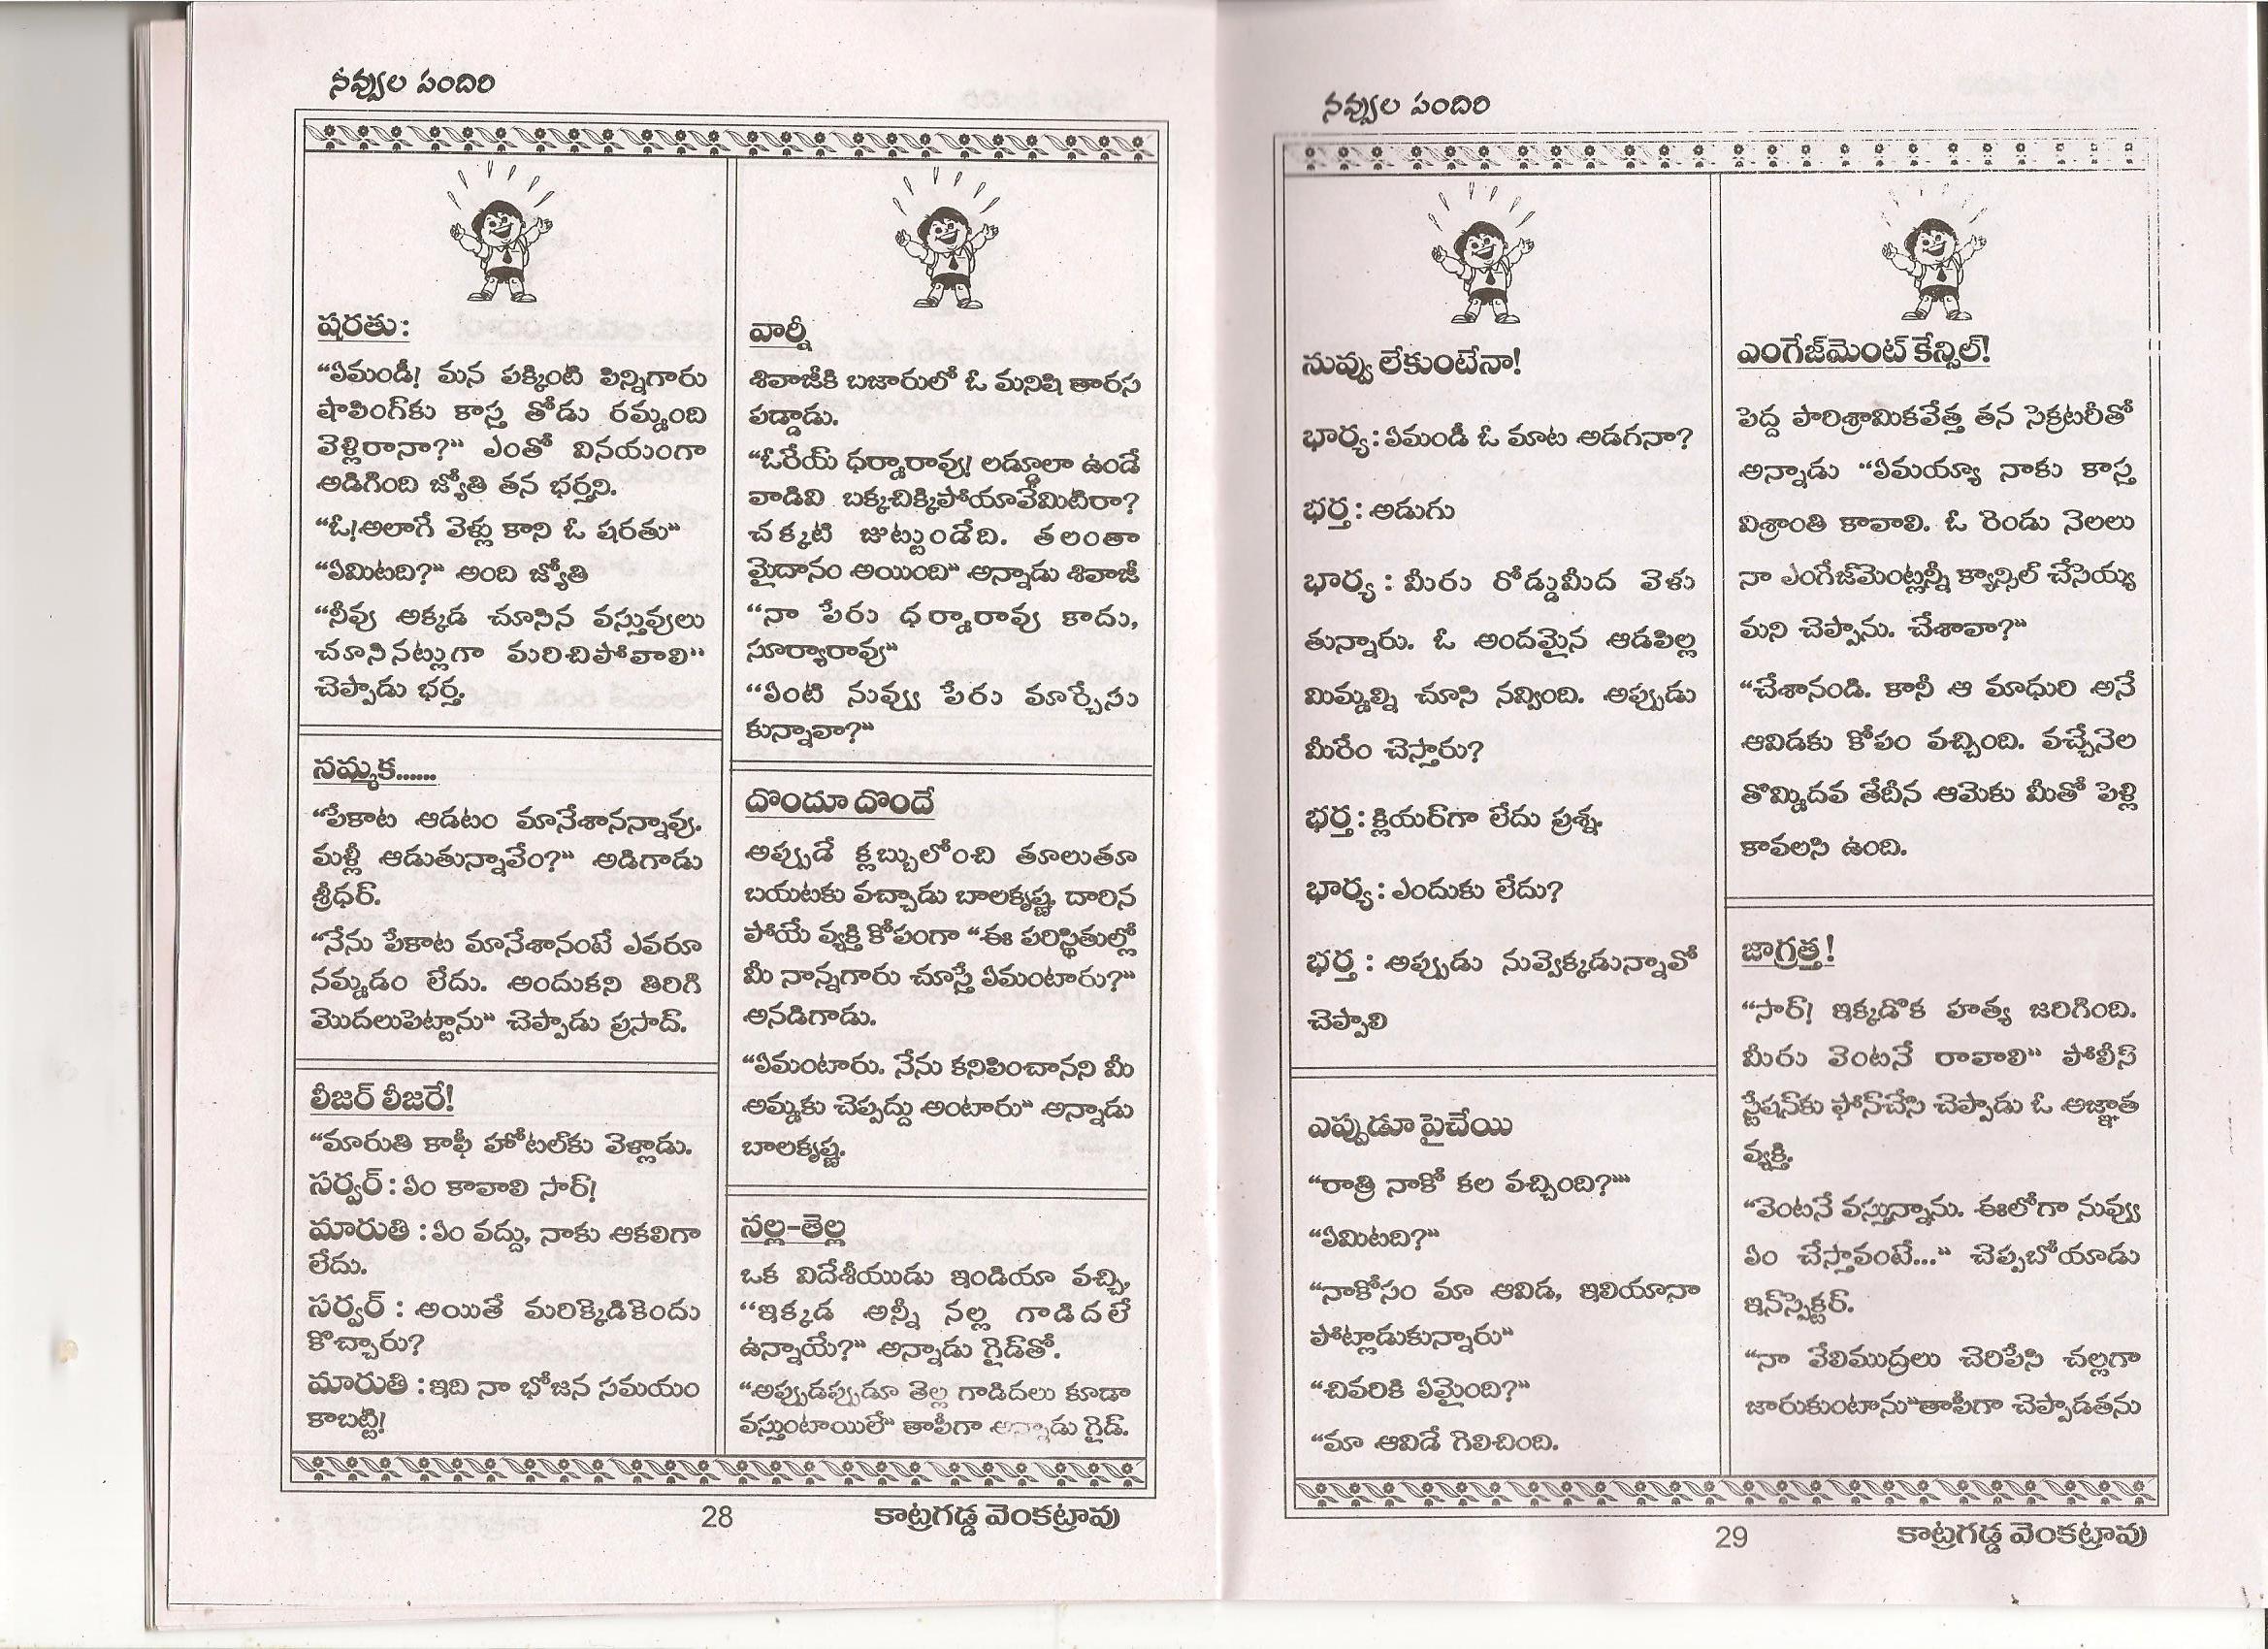 నవ్వుల పందిరి
షరతు:
“ఏమండీ! మన పక్కింటి పిన్నిగారు
షాపింగ్‌కు కాస్త తోడు రమ్మంది
వెళ్లిరానా?” ఎంతో వినయంగా
అడిగింది జ్యోతి తన భర్తని.
“ఓ!అలాగే వెళ్లు కాని ఓ షరతు”
“ఏమిటది?” అంది జ్యోతి
“నీవు అక్కడ చూసిన వస్తువులు
చూసినట్లుగా మరిచిపోవాలి”
చెప్పాడు భర్త.
నమ్మక......
“పేకాట ఆడటం మానేశానన్నావు.
మళ్లీ ఆడుతున్నావేం?” అడిగాడు
శ్రీధర్.
“నేను పేకాట మానేశానంటే ఎవరూ
నమ్మడం లేదు. అందుకని తిరిగి
మొదలుపెట్టాను” చెప్పాడు ప్రసాద్.
లీజర్ లీజరే!
“మారుతి కాఫీ హోటల్‌కు వెళ్లాడు.
సర్వర్ : ఏం కావాలి సార్!
మారుతి : ఏం వద్దు, నాకు ఆకలిగా
లేదు.
సర్వర్ : అయితే మరిక్కెడికెందు
కొచ్చారు?
మారుతి : ఇది నా భోజన సమయం
కాబట్టి!
వార్నీ
శివాజీకి బజారులో ఓ మనిషి తారస
పడ్డాడు.
“ఓరేయ్ ధర్మారావు! లడ్డూలా ఉండే
వాడివి బక్కచిక్కిపోయావేమిటిరా?
చక్కటి జుట్టుండేది. తలంతా
మైదానం అయింది” అన్నాడు శివాజీ
“నా పేరు ధర్మారావు కాదు,
సూర్యారావు”
“ఏంటి నువ్వు పేరు మార్చేసు
కున్నావా?”
దొందూ దొందే
అప్పుడే క్లబ్బులోంచి తూలుతూ
బయటకు వచ్చాడు బాలకృష్ణ. దారిన
పోయే వ్యక్తి కోపంగా “ఈ పరిస్థితుల్లో
మీ నాన్నగారు చూస్తే ఏమంటారు?”
అనడిగాడు.
“ఏమంటారు. నేను కనిపించానని మీ
అమ్మకు చెప్పద్దు అంటారు” అన్నాడు
బాలకృష్ణ.
నల్ల-తెల్ల
ఒక విదేశీయుడు ఇండియా వచ్చి,
“ఇక్కడ అన్నీ నల్ల గాడిదలే
ఉన్నాయే?” అన్నాడు గైడ్‌తో.
“అప్పుడప్పుడూ తెల్ల గాడిదలు కూడా
వస్తుంటాయిలే” తాపీగా అన్నాడు గైడ్.
28
కాట్రగడ్డ వెంకట్రావు
నవ్వుల పందిరి
నువ్వు లేకుంటేనా!
భార్య : ఏమండీ ఓ మాట అడగనా?
భర్త : అడుగు
భార్య : మీరు రోడ్డుమీద వెళు
తున్నారు. ఓ అందమైన ఆడపిల్ల
మిమ్మల్ని చూసి నవ్వింది. అప్పుడు
మీరేం చెస్తారు?
భర్త : క్లియర్‌గా లేదు ప్రశ్న.
భార్య : ఎందుకు లేదు?
భర్త : అప్పుడు నువ్వెక్కడున్నావో
చెప్పాలి
ఎప్పుడూ పైచేయి
“రాత్రి నాకో కల వచ్చింది?””
“ఏమిటది?”
“నాకోసం మా ఆవిడ, ఇలియానా
పోట్లాడుకున్నారు”
“చివరికి ఏమైంది?”
“మా ఆవిడే గెలిచింది.
ఎంగేజ్‌మెంట్ కేన్సిల్!
పెద్ద పారిశ్రామికవేత్త తన సెక్రటరీతో
అన్నాడు “ఏమయ్యా నాకు కాస్త
విశ్రాంతి కావాలి. ఓ రెండు నెలలు
నా ఎంగేజ్‌మెంట్లన్నీ క్యాన్సిల్ చేసెయ్య
మని చెప్పాను. చేశావా?”
“చేశానండి. కానీ ఆ మాధురి అనే
ఆవిడకు కోపం వచ్చింది. వచ్చేనెల
తొమ్మిదవ తేదీన ఆమెకు మీతో పెళ్లి
కావలసి ఉంది.
జాగ్రత్త!
“సార్! ఇక్కడొక హత్య జరిగింది.
మీరు వెంటనే రావాలి” పోలీస్
స్టేషన్‌కు ఫోన్‌చేసి చెప్పాడు ఓ అజ్ఞాత
వ్యక్తి.
“వెంటనే వస్తున్నాను. ఈలోగా నువ్వు
ఏం చేస్తావంటే...” చెప్పబోయాడు
ఇన్‌స్పెక్టర్.
“నా వేలిముద్రలు చెరిపేసి చల్లగా
జారుకుంటాను”తాపీగా చెప్పాడతను
29
కాట్రగడ్డ వెంకట్రావు